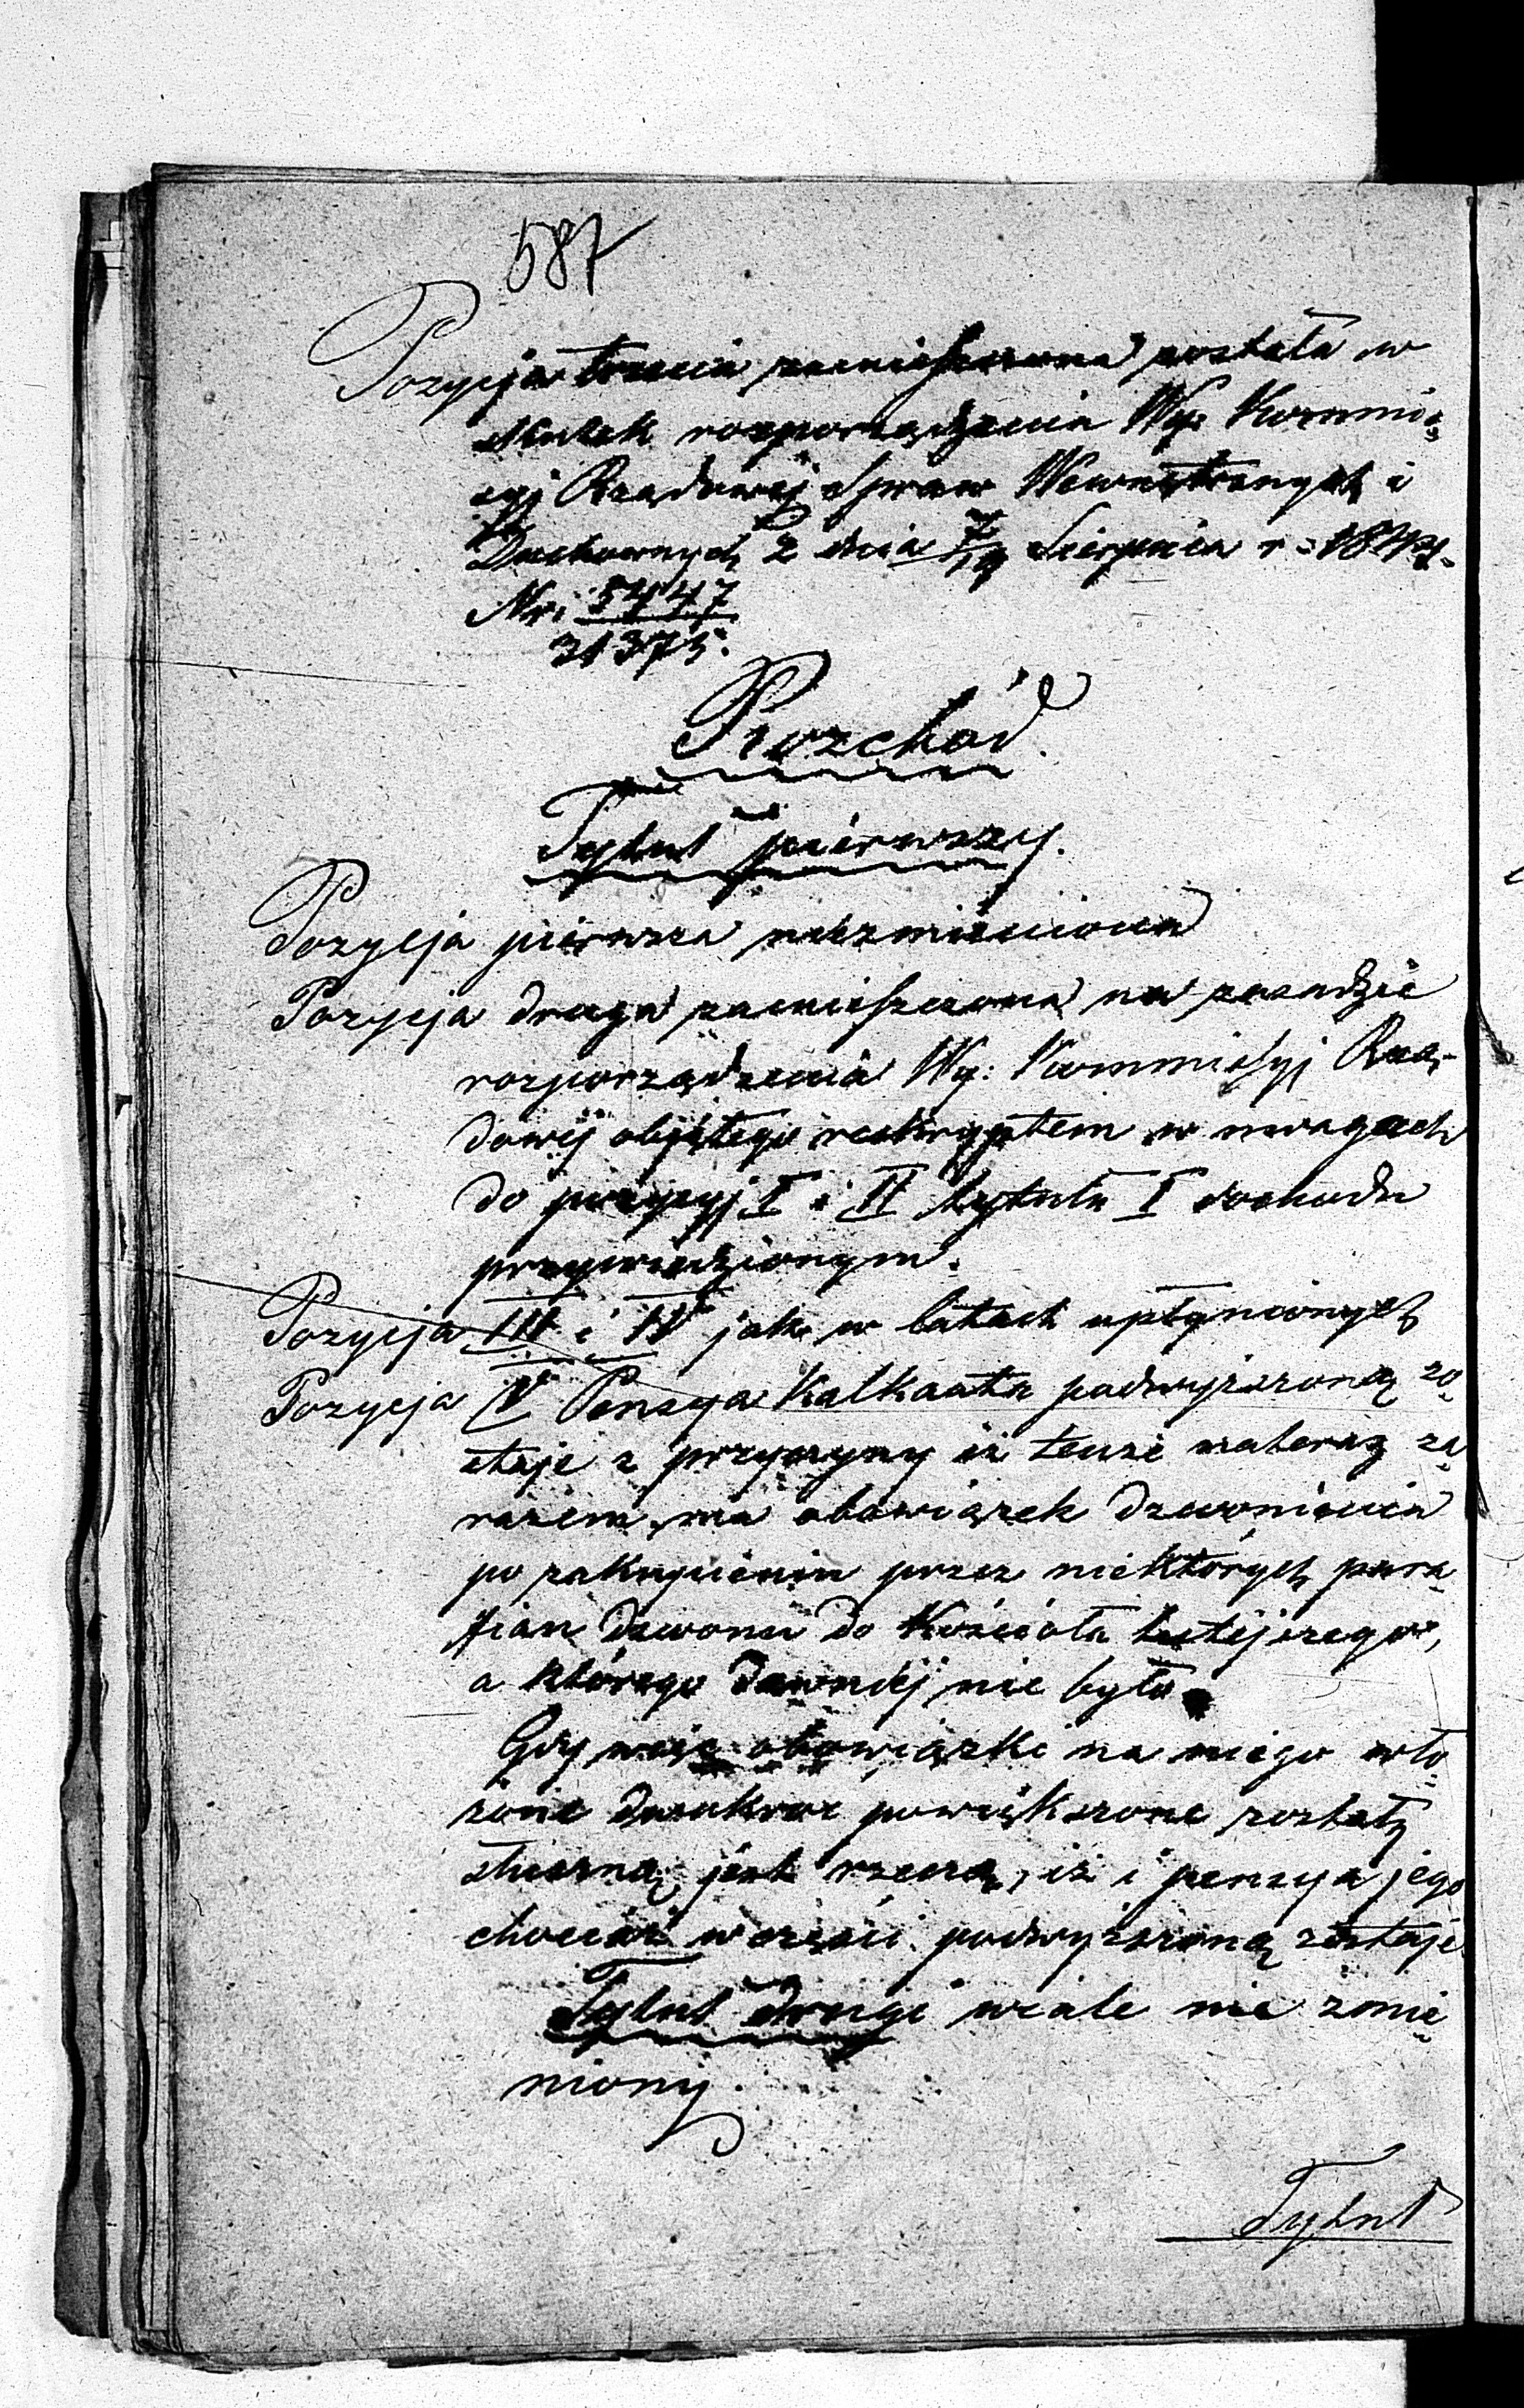 587
Pozycja trzecia zamieszczona została w
skutek rozporządzenia Wy: Kommis=
syi Rządowej Spraw Wewnętrznych i
Duchownych z dnia 7/19 Sierpnia r.
Nr: 5447/31375.
Rozchód.
Tytuł pierwszy.
Pozycja pierwsza niezmieniona
Pozycja druga zamieszczona na zasadzie
rozporządzenia Wy: Kommissyj Rzą-
dowéj objętego reskryptem w uwagach
do pozycyj I i II tytułu I dochodu
przywiedzionym.
Pozycja III i IV jak w latach upłynionych
Pozycja V Pensya Kalkanta podwyższoną zo
staje z przyczyny iż tenże teraz za
razem ma obowiązek dzwonienia
po zakupieniu przez niektórych para
fian dzwonu do Kościoła tutéjszego,
a którego dawniéj nie było.
Gdy więc obowiązki na niego wło
żone dwakroć powiększone zostały
słuszną jest rzeczą, iż i pensya jego
chociaż w części podwyższoną zostaje
Tytuł drugi wcale nie zmie
niony.
Tytuł